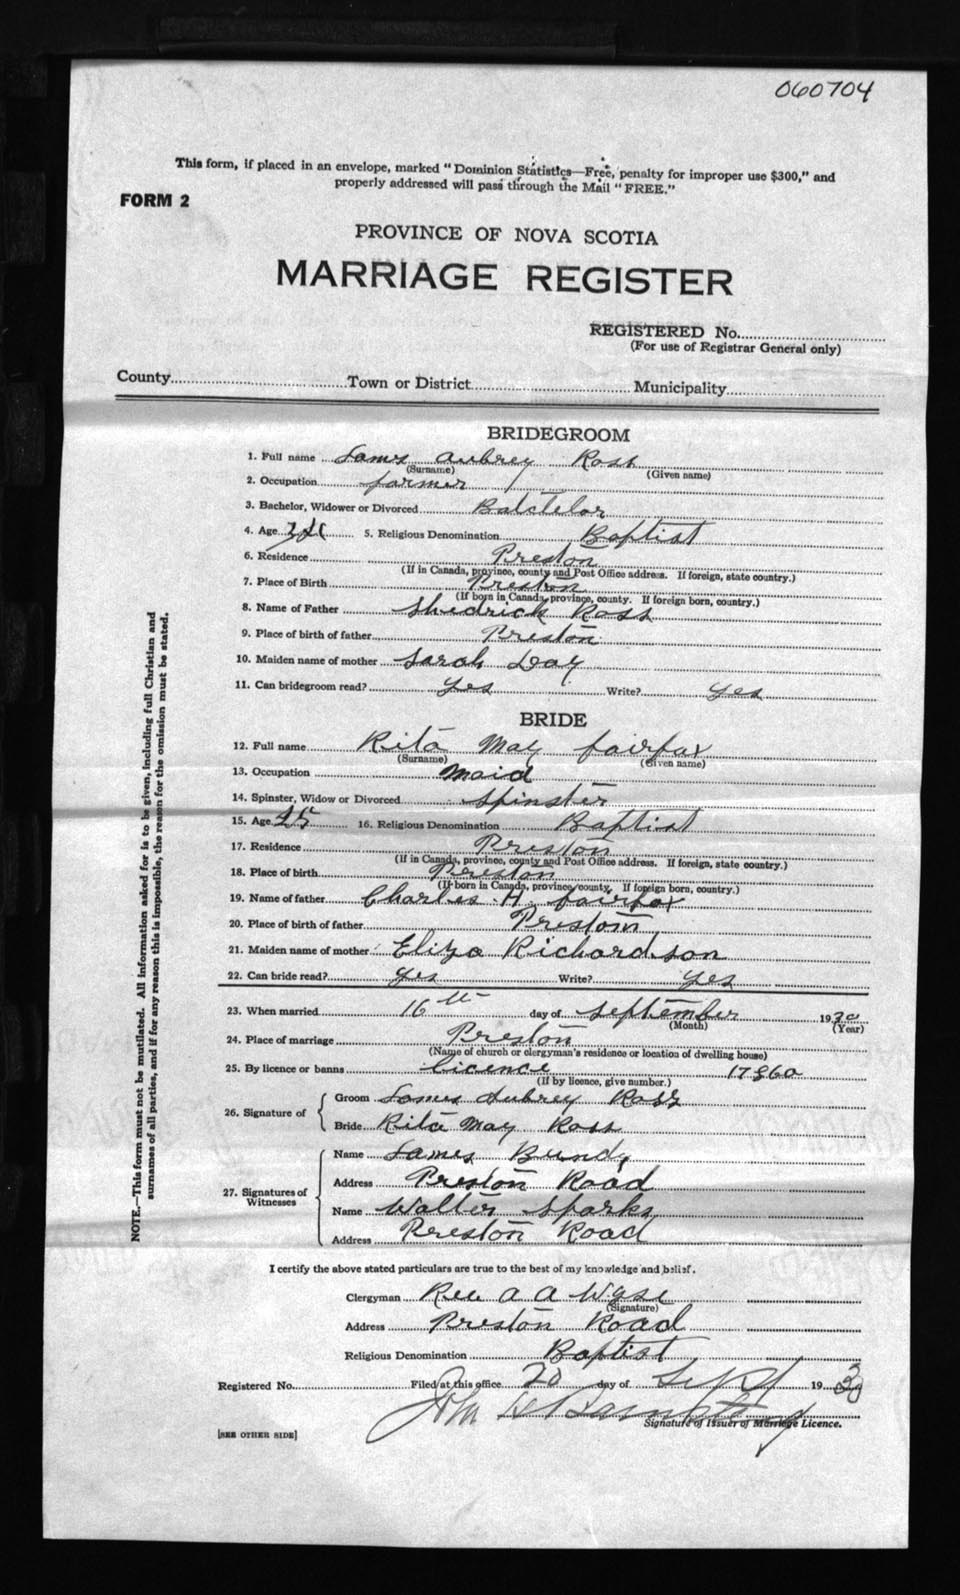 060704
This form, if placed in an envelope, marked "Dominion Statistics—Free, penalty for improper use $300," and
properly addressed will pass through the Mail "FREE."
FORM 2
PROVINCE OF NOVA SCOTIA
MARRIAGE REGISTER
REGISTERED No.
(For use of Registrar General only)
County Town or District Municipality
BRIDEGROOM
1. Full name James Aubrey Ross
(Surname) (Given name)
2. Occupation farmer
3. Bachelor, Widower or Divorced Batchelor
4. Age 5. Religious Denomination Baptist
6. Residence Preston
(If in Canada, province, county and Post Office address. If foreign, state country.)
7. Place of Birth Preston
(If born in Canada, province, county. If foreign born, country.)
8. Name of Father Shedrick Ross
9. Place of birth of father Preston
10. Maiden name of mother Sarah Day
11. Can bridegroom read? yes Write? yes
BRIDE
12. Full name Rita May fairfax
(Surname) (Given name)
13. Occupation maid
14. Spinster, Widow or Divorced Spinster
15. Age 25 16. Religious Denomination Baptist
17. Residence Preston
(If in Canada, province, county and Post Office address. If foreign, state country.)
18. Place of birth Preston
(If born in Canada, province, county. If foreign born, country.)
19. Name of father Charles H. fairfax
20. Place of birth of father Preston
21. Maiden name of mother Eliza Richardson
22. Can bride read? yes Write? yes
23. When married 16th day of September 1930
(Month) (Year)
24. Place of marriage Preston
(Name of church or clergyman's residence or location of dwelling house)
25. By licence or banns licence 17960
(If by licence, give number.)
26. Signature of
Groom James Aubrey Ross
Bride Rita May Ross
27. Signatures of Witnesses
Name James Bundy
Address Preston Road
Name Walter Sparks
Address Preston Road
I certify the above stated particulars are true to the best of my knowledge and belief.
Clergyman Rev A A Wyse
(Signature)
Address Preston Road
Religious Denomination Baptist
Registered No. Filed at this office 20 day of Sept 1930
John
Signature of Issuer of Marriage Licence.
[SEE OTHER SIDE]
NOTE.—This form must not be mutilated. All information asked for is to be given, including full Christian and
surnames of all parties, and if for any reason this is impossible, the reason for the omission must be stated.